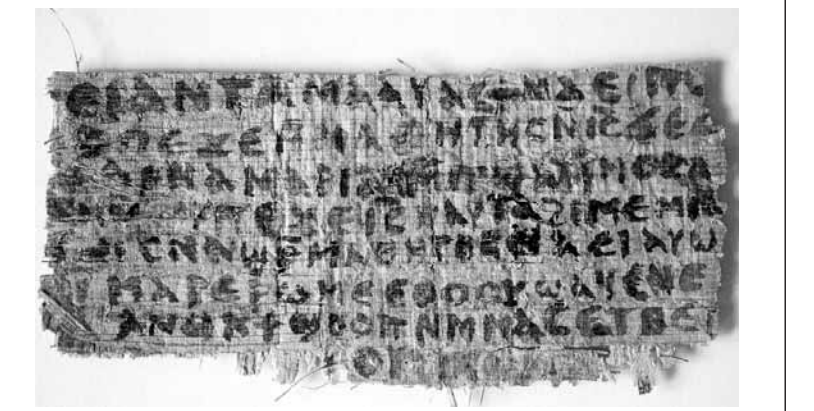 ⲉⲓ ⲁⲛ ⲧⲁⲙⲁⲁⲩ ⲁⲥϯ ⲛⲁⲉⲓ ⲡ
ⲡⲉϫⲉ ⲙⲙⲁⲑⲏⲧⲏⲥ ⲛⲓⲥ ϫⲉ ⲥ
ⲁⲣⲛⲁ ⲙⲁⲣⲓⲁⲙ
ⲡⲉϫⲉ ⲓⲥ ⲛⲁⲩ ⲧⲁϩⲓⲙⲉ ⲙⲛ
ⲙⲁⲑⲏⲧⲏⲥ ⲛⲁⲉⲓ ⲁⲩⲱ
ⲙⲁⲣⲉⲣⲱⲙⲉ ⲉⲑⲟⲟⲩ ϣⲁϥⲉ ⲛⲉ
ⲁⲛⲟⲕ ϯϣⲟⲟⲡ ⲛⲙⲙⲁⲥ ⲉⲧⲃⲉ